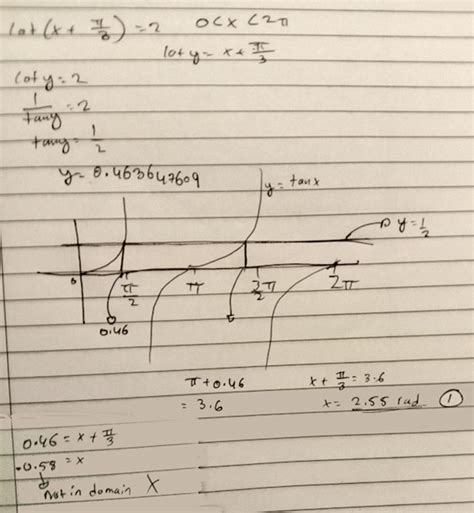 cot (x + π/3) = 2    0 < x < 2π
let y = x + π/3
cot y = 2
1/tan y = 2
tan y = 1/2
y = 0.463647609
y = tan x
y = 1/2
0 π/2 π 3/2 π 2π
0.46
π + 0.46    x + π/3 = 3.6
= 3.6    x = 2.55 rad ①
0.46 = x + π/3
-0.58 = x
Not in domain X